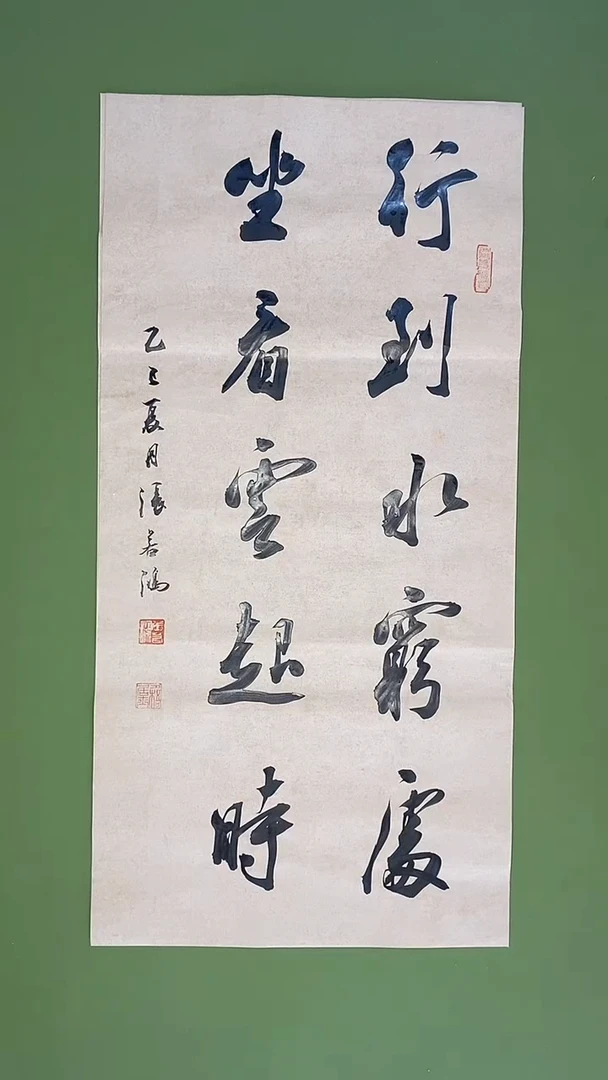 行到水窮處
坐看雲起時
乙巳夏月張若鴻